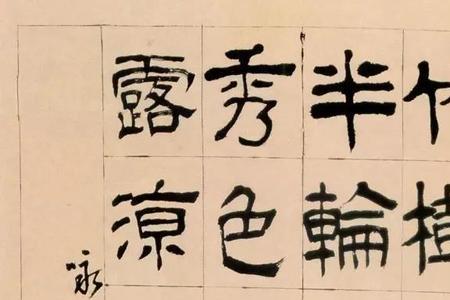 半輪
秀色
露涼
咏